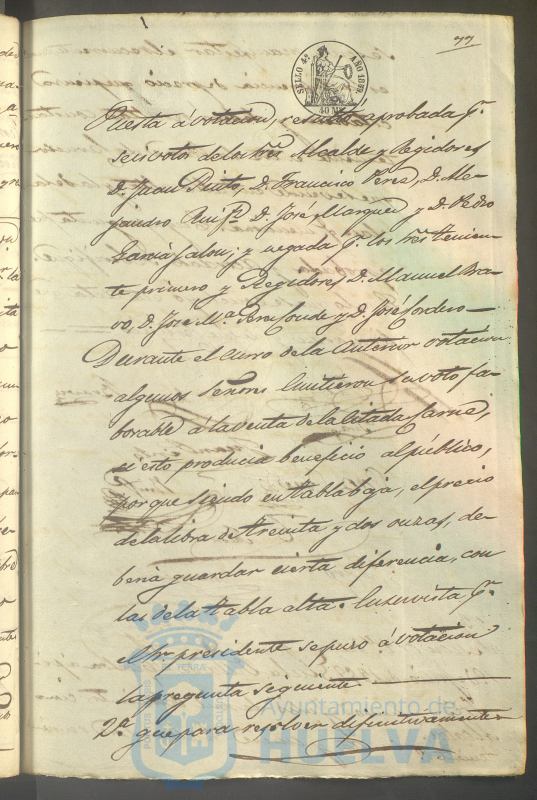 77
SELLO 4º AÑO 1869.
Puesta á votacion, resultó aprobada pr.
seis votos de los Sres Alcalde y Regidores
D. Juan Pinto, D. Francisco Perez, D. Ale-
jandro D. José Marquez y D. Pedro
Garcia Jalon; y negada pr. los Sres Tenien-
te primero y Regidores D. Manuel Bra-
vo, D. José Ma. y D. José Cordero
Durante el curso de la anterior votacion
algunos Señores emitieron su voto fa-
borable á la venta de la citada Carne,
si esto producia beneficio al público,
porque siendo en tabla baja, el precio
de la libra de treinta y dos onzas, de-
beria guardar cierta diferencia, con
las de la tabla alta. En su vista pr.
el Sr presidente se puso á votacion
la pregunta siguiente
2ª que para resolver definitivamente
Ayuntamiento de
HUELVA